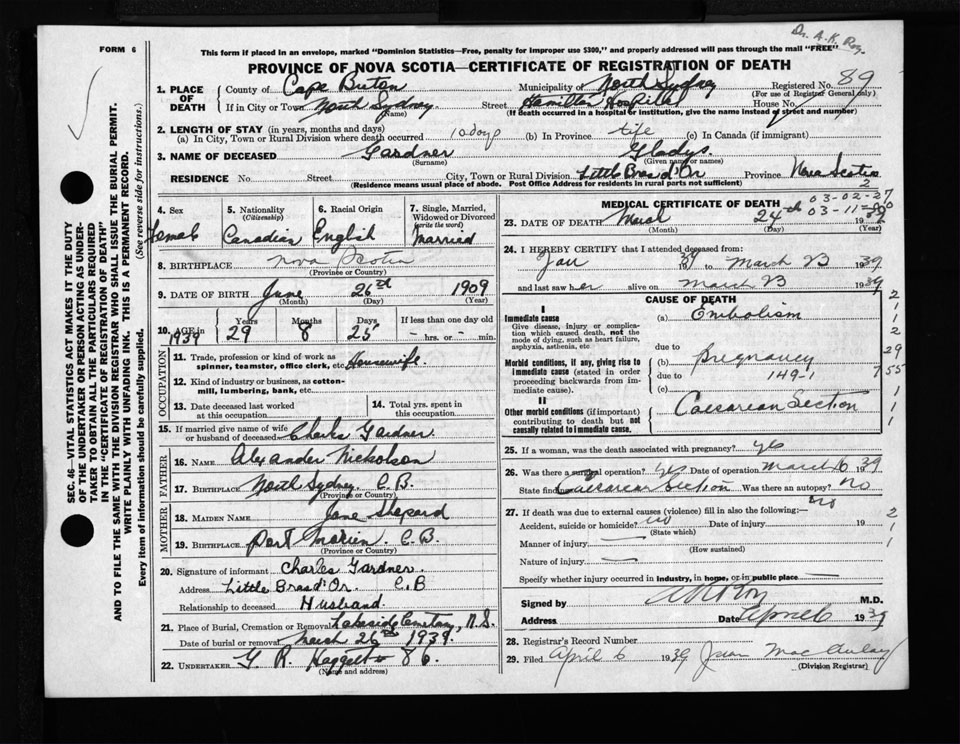 Dr. A. K. Roy.
FORM 6
This form if placed in an envelope, marked "Dominion Statistics—Free, penalty for improper use $300," and properly addressed will pass through the mail "FREE"
PROVINCE OF NOVA SCOTIA—CERTIFICATE OF REGISTRATION OF DEATH
SEC. 46—VITAL STATISTICS ACT MAKES IT THE DUTY
OF THE UNDERTAKER OR PERSON ACTING AS UNDER-
TAKER TO OBTAIN ALL THE PARTICULARS REQUIRED
IN THE "CERTIFICATE OF REGISTRATION OF DEATH"
AND TO FILE THE SAME WITH THE DIVISION REGISTRAR WHO SHALL ISSUE THE BURIAL PERMIT.
WRITE PLAINLY WITH UNFADING INK. THIS IS A PERMANENT RECORD.
Every item of information should be carefully supplied. (See reverse side for instructions.)
1. PLACE OF DEATH
County of Cape Breton Municipality of North Sydney Registered No. 89
(For use of Registrar General only)
If in City or Town North Sydney Street Hamilton Hospital House No.
(Name) (If death occurred in a hospital or institution, give the name instead of street and number)
2. LENGTH OF STAY (in years, months and days)
(a) In City, Town or Rural Division where death occurred 10 days (b) In Province life (c) In Canada (if immigrant)
3. NAME OF DECEASED Gardner Gladys.
(Surname) (Given name or names)
RESIDENCE No. Street City, Town or Rural Division Little Bras d'Or Province Nova Scotia
(Residence means usual place of abode. Post Office Address for residents in rural parts not sufficient)
2
4. Sex Female
5. Nationality (Citizenship) Canadian
6. Racial Origin English
7. Single, Married, Widowed or Divorced (write the word) Married
8. BIRTHPLACE Nova Scotia
(Province or Country)
9. DATE OF BIRTH June 26th 1909
(Month) (Day) (Year)
10. AGE in 1939 Years 29 Months 8 Days 25 If less than one day old
hrs. or min.
OCCUPATION
11. Trade, profession or kind of work as
spinner, teamster, office clerk, etc. Housewife.
12. Kind of industry or business, as cotton-
mill, lumbering, bank, etc.
13. Date deceased last worked
at this occupation
14. Total yrs. spent in
this occupation
15. If married give name of wife
or husband of deceased Charles Gardner.
FATHER
16. NAME Alexander Nickolson
17. BIRTHPLACE North Sydney C.B.
(Province or Country)
MOTHER
18. MAIDEN NAME Jane Shepard
19. BIRTHPLACE Port Morien. C.B.
(Province or Country)
20. Signature of informant Charles Gardner.
Address Little Bras d'Or. C.B
Relationship to deceased Husband.
21. Place of Burial, Cremation or Removal Lakeside Cemetary, N.S.
Date of burial or removal March 26th 1939.
22. UNDERTAKER G. R.
(Name and address)
MEDICAL CERTIFICATE OF DEATH
03-02-27
03-11-00
23. DATE OF DEATH March 24th 1939
(Month) (Day) (Year)
24. I HEREBY CERTIFY that I attended deceased from:
Jan 1939 to March 23 1939
and last saw her alive on March 23 1939
CAUSE OF DEATH
I
Immediate cause
Give disease, injury or complica-
tion which caused death, not the
mode of dying, such as heart failure,
asphyxia, asthenia, etc.
(a) Embolism
due to
Morbid conditions, if any, giving rise to
immediate cause (stated in order
proceeding backwards from im-
mediate cause).
(b) Pregnancy
due to 149-1
(c)
II
Other morbid conditions (if important)
contributing to death but not
causally related to immediate cause.
Caesarean Section
2
1
1
2
29
7 55
1
1
1
25. If a woman, was the death associated with pregnancy? yes
26. Was there a surgical operation? yes Date of operation March 16 1939
State findings Caesarean Section Was there an autopsy? No
27. If death was due to external causes (violence) fill in also the following:— No
Accident, suicide or homicide? no Date of injury 19
(State which)
Manner of injury
(How sustained)
Nature of injury
Specify whether injury occurred in industry, in home, or in public place
2
1
1
Signed by A K Roy M.D.
Address Date April 6 1939
28. Registrar's Record Number
29. Filed April 6 1939 Jean MacAulay
(Division Registrar)